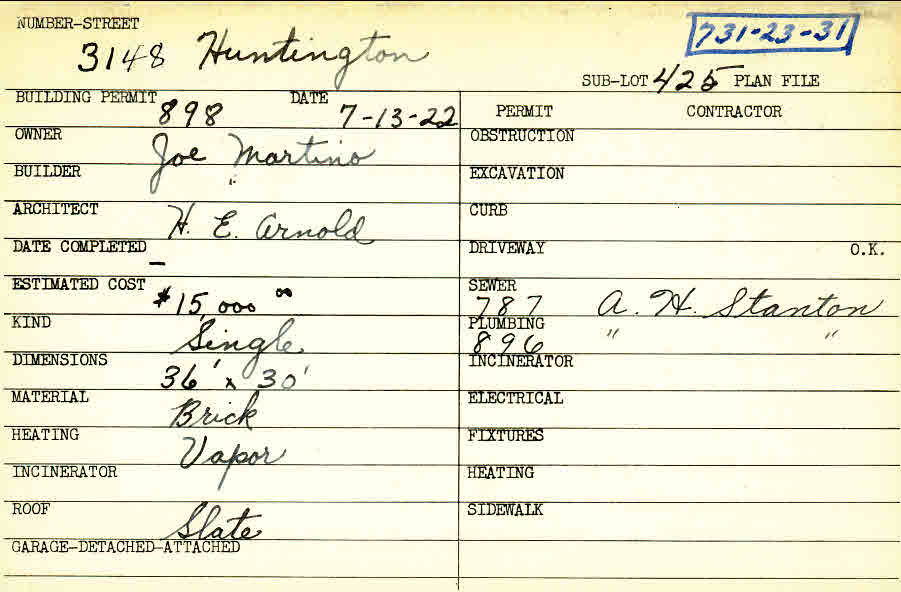 NUMBER-STREET
3148 Huntington
731-23-31
SUB-LOT 425 PLAN FILE
BUILDING PERMIT 898 DATE 7-13-22
OWNER Joe Martino
BUILDER "
ARCHITECT H. E. Arnold
DATE COMPLETED –
ESTIMATED COST $15,000 00
KIND Single
DIMENSIONS 36' x 30'
MATERIAL Brick
HEATING Vapor
INCINERATOR
ROOF Slate
GARAGE-DETACHED-ATTACHED
PERMIT CONTRACTOR
OBSTRUCTION
EXCAVATION
CURB
DRIVEWAY O.K.
SEWER 787 A. H. Stanton
PLUMBING 896 " "
INCINERATOR
ELECTRICAL
FIXTURES
HEATING
SIDEWALK